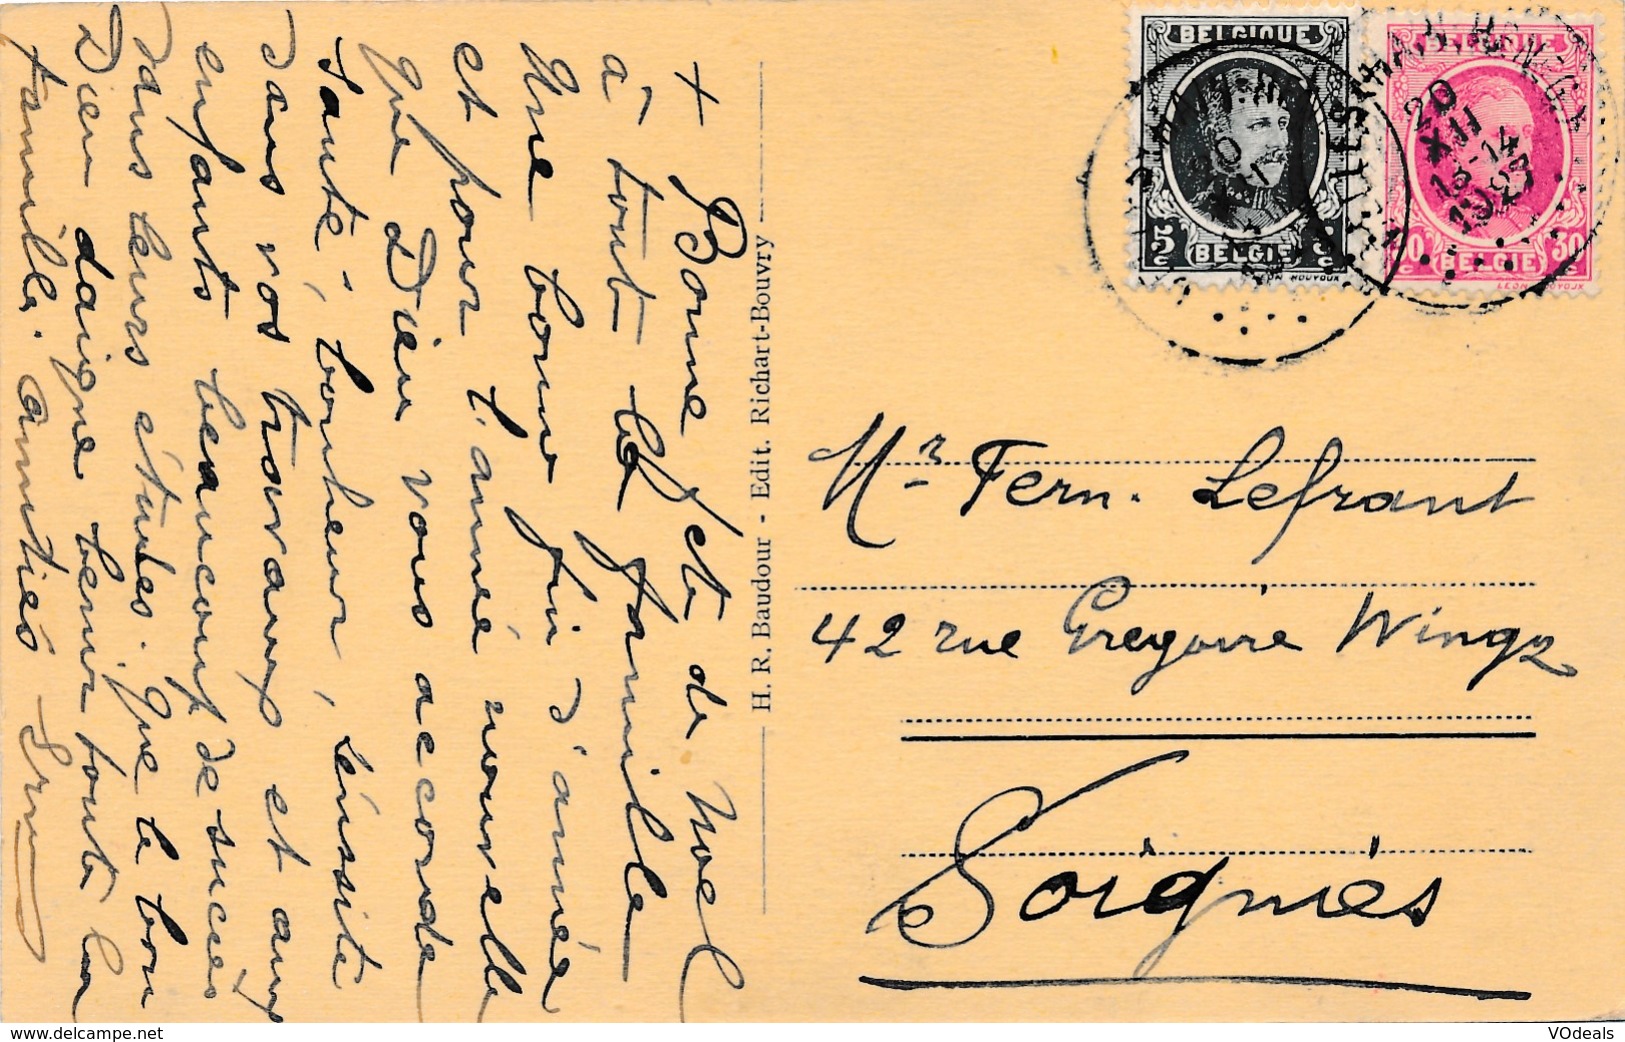 + Bonne fete de Noel
a tout la famille
Une bonne fin d'année
et pour l'année nouvelle
que Dieu vous accorde
santé, bonheur, réussite
dans vos travaux et aux
enfants beaucoup de succès
dans leurs études. Que le bon
Dieu daigne benir toute la
famille. Amitiés
H. R. Baudour - Edit. Richart-Bouvry
BELGIQUE
5 c
BELGIË
5 c
BELGIQUE
30 c
BELGIE
30 c
20
XII
13-14
1927
Mr Fern. Lefrant
42 rue Gregoire Wincqz
Soignies
www.delcampe.net
VOdeals